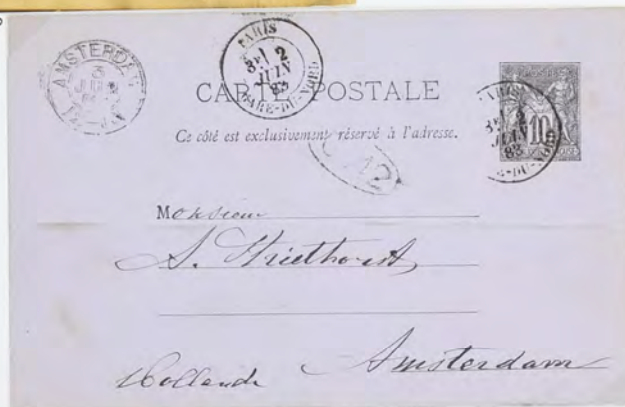 AMSTERDAM
3
JUN
PARIS
3E 2
JUIN
83
GARE-DU-NORD
CARTE POSTALE
Ce côté est exclusivement réservé à l'adresse.
10
PARIS
3E 2
JUIN
83
GARE-DU-NORD
Monsieur
A.
Hollande Amsterdam